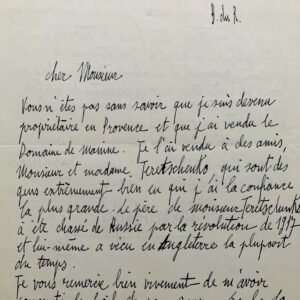 B. du R.
cher Monsieur
Vous n'êtes pas sans savoir que je suis devenu
propriétaire en Provence et que j'ai vendu le
Domaine de Manine. Je l'ai vendu à des amis,
Monsieur et madame Teretschenko, qui sont des
gens extrêmement bien en qui j'ai la confiance
la plus grande. le père de monsieur Teretschenko
a été chassé de Russie par la révolution de 1917
et lui-même a vécu en Angleterre la plupart
du temps.
Je vous remercie bien vivement de m'avoir